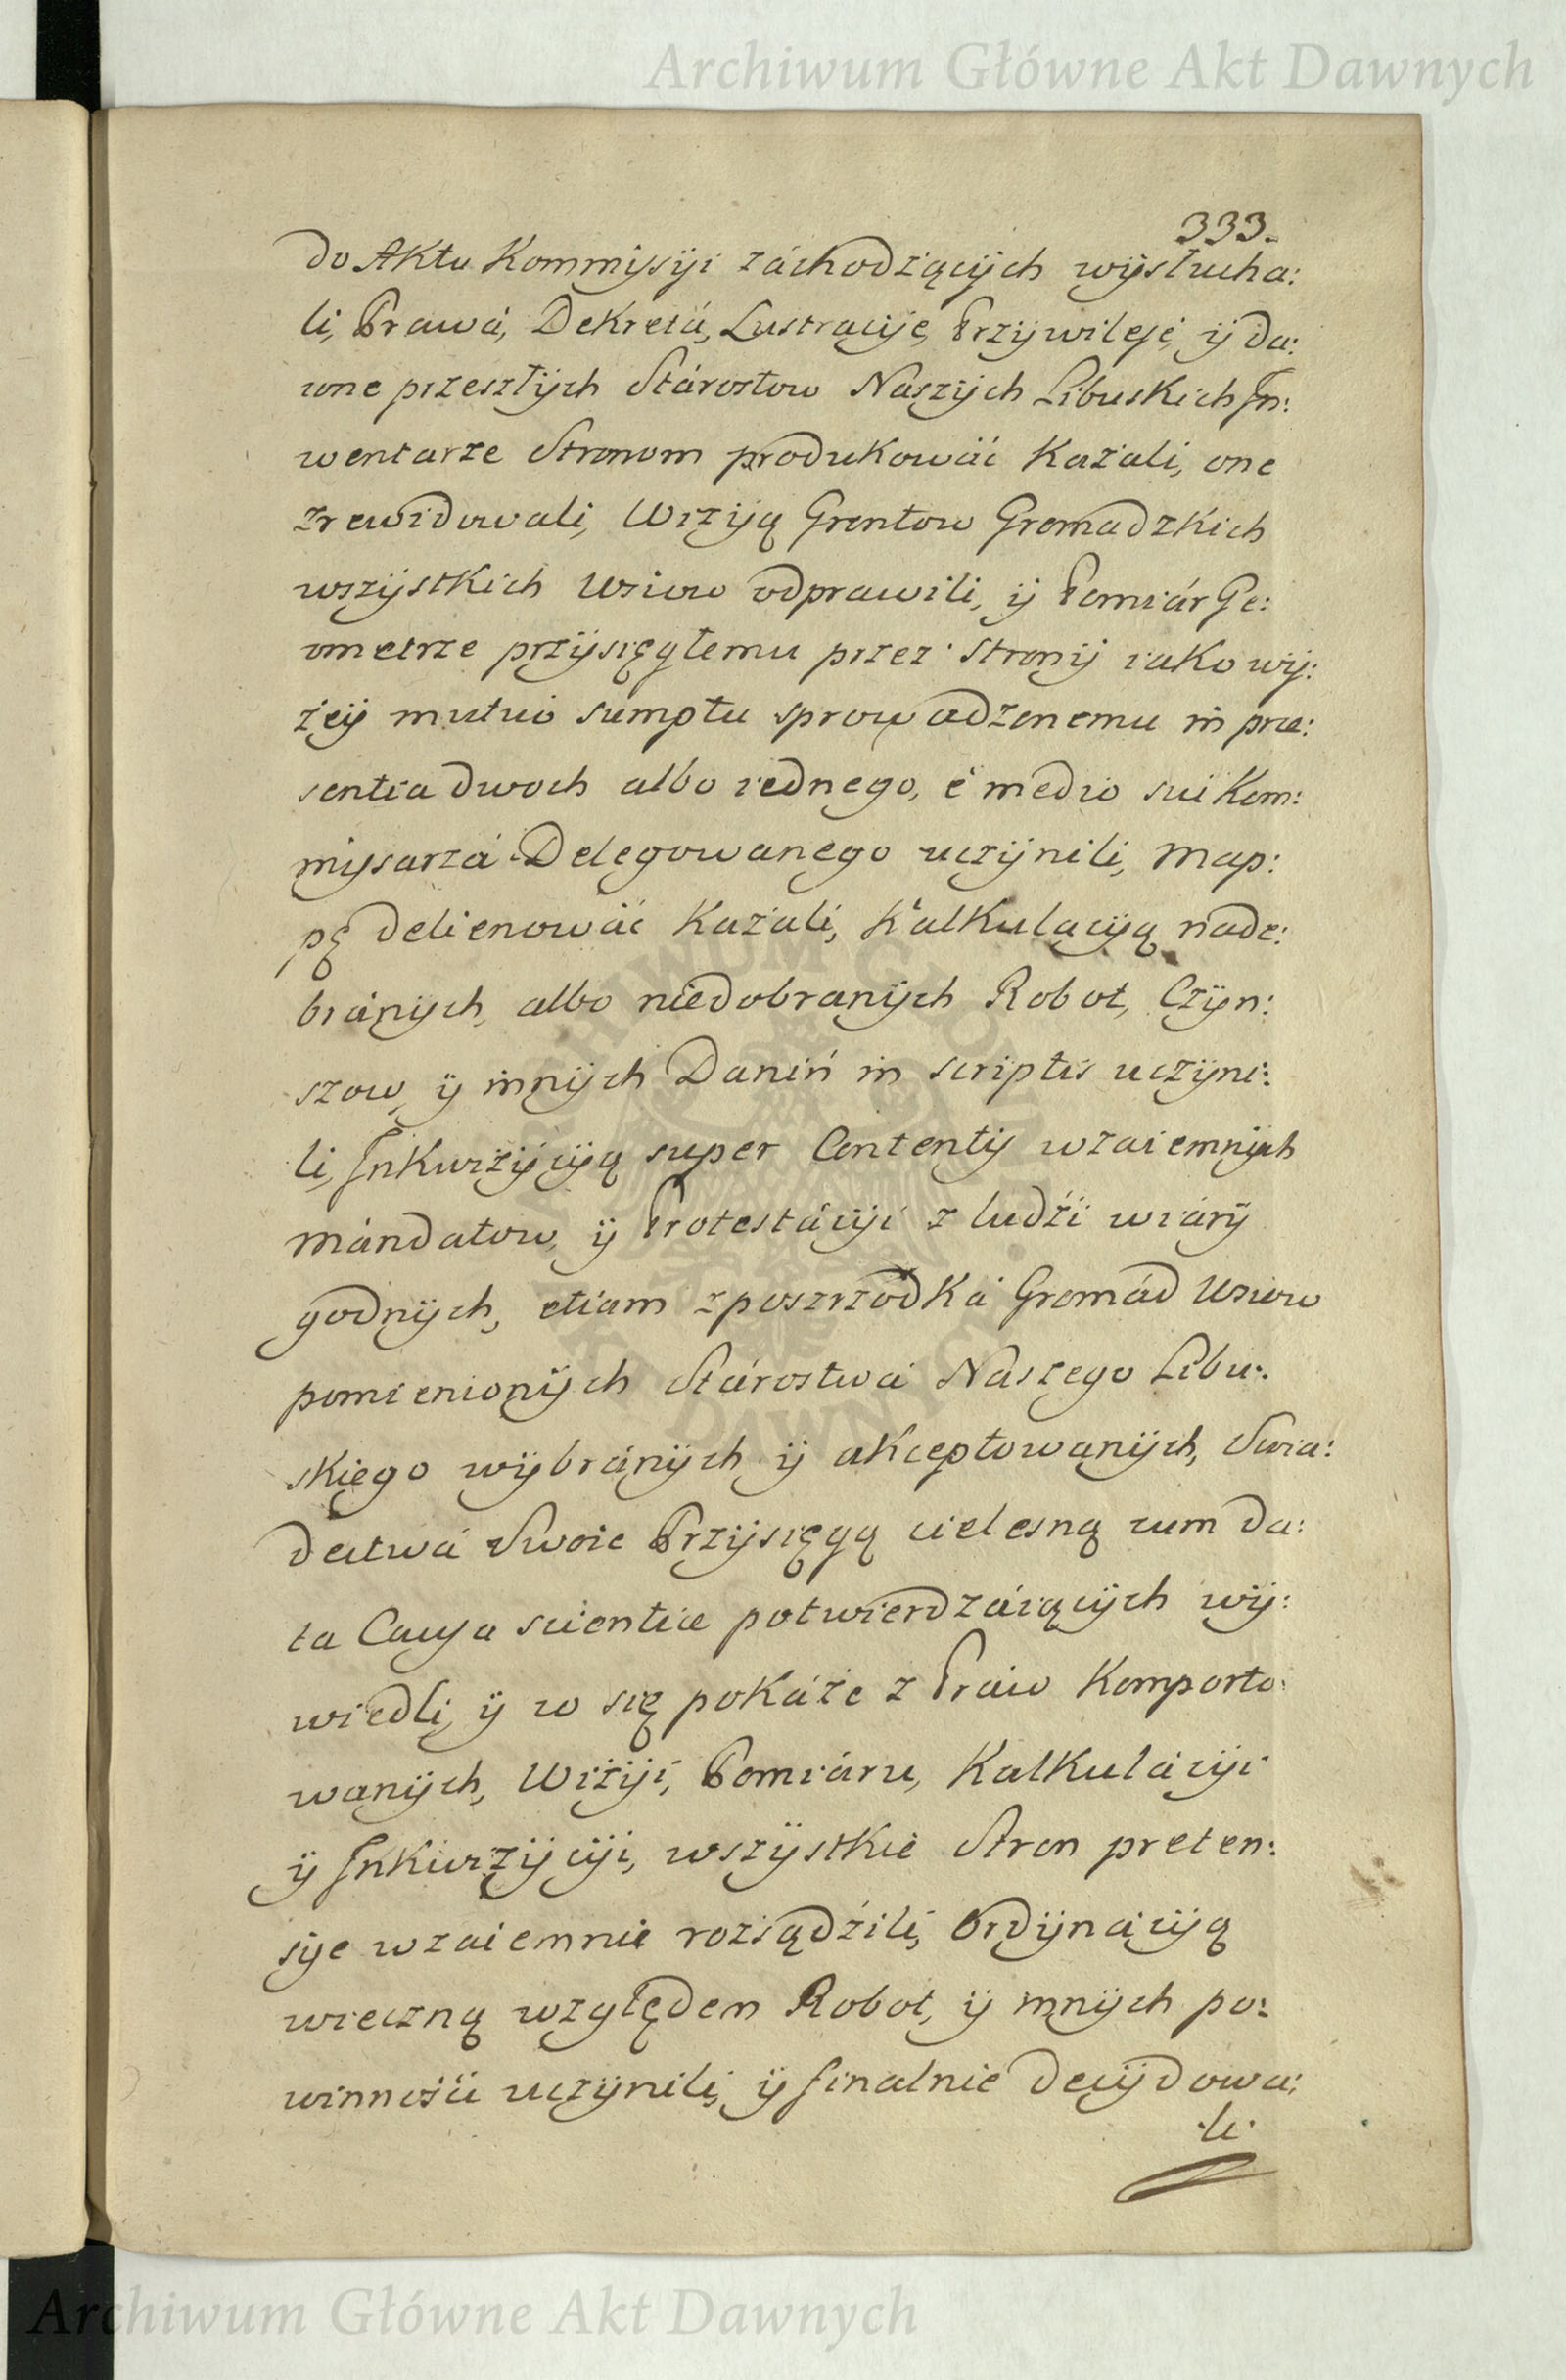 Archiwum Główne Akt Dawnych
333.
do Aktu Kommisyi záchodzących wysłucha:
li, Prawá, Dekretá, Lustracye, Przywileje, y da:
wne przeszłych Stárostow Naszych Libuskich In:
wentarze Stronom produkowáć Kazali, one
zrewidowali, Wizyą Grontow Gromadzkich
wszystkich Wsiow odprawili, y Pomiár Ge:
ometrze przysięgłemu przez Strony iako wy:
żey mutuo sumptu sprowadzonemu in præ:
sentia dwoch albo iednego, é medio sui Kom:
mysarzá Delegowanego uczynili, Map:
pę delienowáć Kazali, Kalkulacyą nade:
bránych, albo niedobranych Robot, Czyn:
szow, y innych Danin in scriptis uczyni:
li, Inkwizycyą super Contenty wzaiemnych
Mándatow, y Protestácyi z ludźi wiáry
godnych, etiam zposzrzodká Gromád Wsiow
pomienionych Stárostwá Naszego Libu:
skiego wybránych y akceptowanych, Swia:
dectwá Swoie Przysięgą cielesną cum da:
ta Causa scientiæ potwierdzáiących wy:
wiedli, y co się pokáże z Praw Komporto:
wanych, Wizyi, Pomiáru, Kalkulácyi
y Inkwizycyi, wszystkie Stron preten:
sye wzaiemnie rozsądźili, Ordynácyą
wieczną względem Robot, y innych po:
winnośći uczynili, y finalnie decydowa:
li.
ARCHIWUM GŁÓWNE
AKT DAWNYCH
Archiwum Główne Akt Dawnych